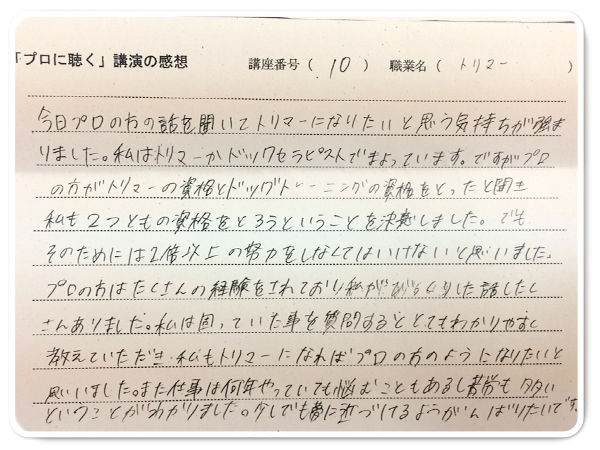 「プロに聴く」講演の感想 講座番号( 10 ) 職業名( トリマー )
今日プロの方の話を聞いてトリマーになりたいと思う気持ちが強ま
りました。私はトリマーかドッグセラピストでまよっています。ですがプロ
の方がトリマーの資格とドッグトレーニングの資格をとったと聞き
私も2つともの資格をとろうということを決意しました。でも
そのためには2倍以上の努力をしなくてはいけないと思いました。
プロの方はたくさんの経験をされており私がびっくりした話もたく
さんありました。私は困っていた事を質問するととてもわかりやすく
教えていただき、私もトリマーになればプロの方のようになりたいと
思いました。また仕事は何年やっていても悩むこともあるし苦労も多い
ということがわかりました。少しでも夢に近づけるようがんばりたいです。